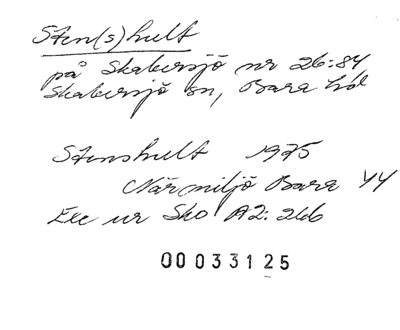 Sten(s)hult
på Skabersjö nr 26:84
Skabersjö sn, Bara hd
Stenshult 1975
Närmiljö Bara 44
Exc ur Sko A2: 26b
00033125